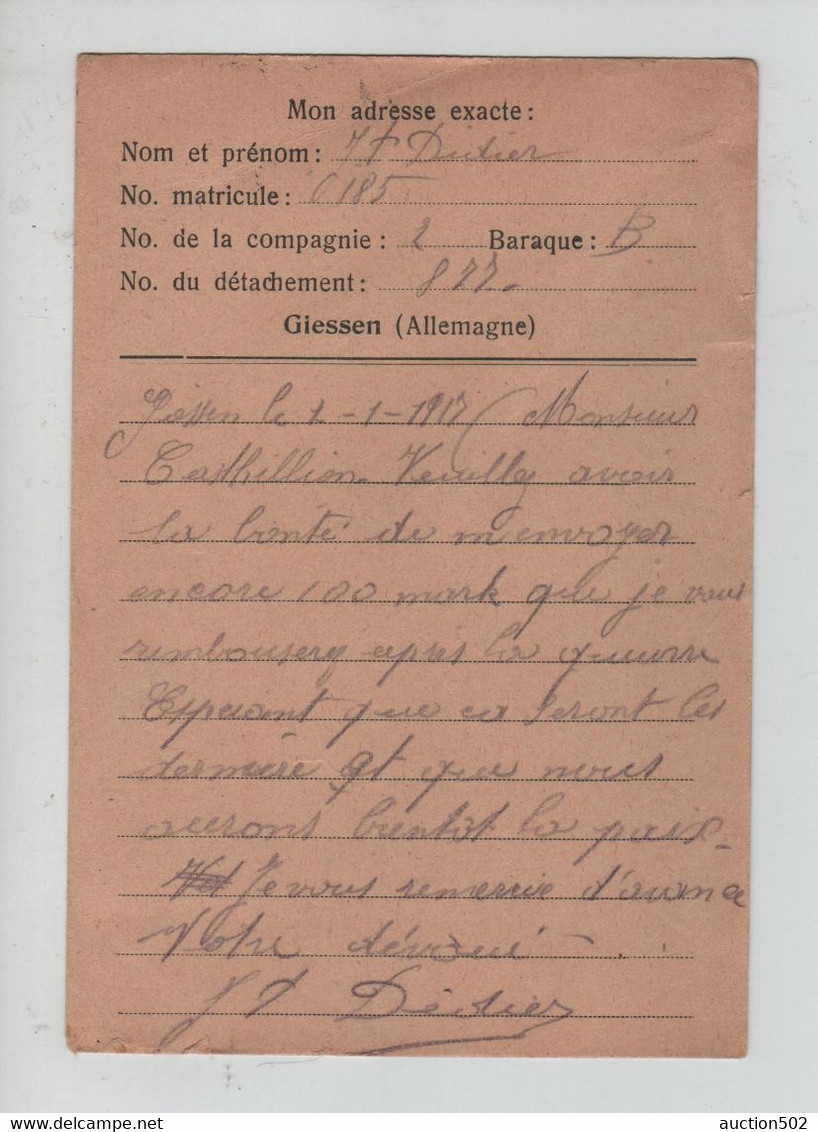 Mon adresse exacte:
Nom et prénom: J P Didier
No. matricule: 6185
No. de la compagnie: 2 Baraque: B
No. du détachement: 877.
Giessen (Allemagne)
le 1-1-1917 Monsieur
Casthillion Veuilly avoir
la bonté de m envoyer
encore 100 mark que je vous
rembouserq apres la
Esperant que ca seront les
derniére et que nous
aurons bientot la paix
Je vous remercie d'avance
Votre dévoué
J P Didier
auction502